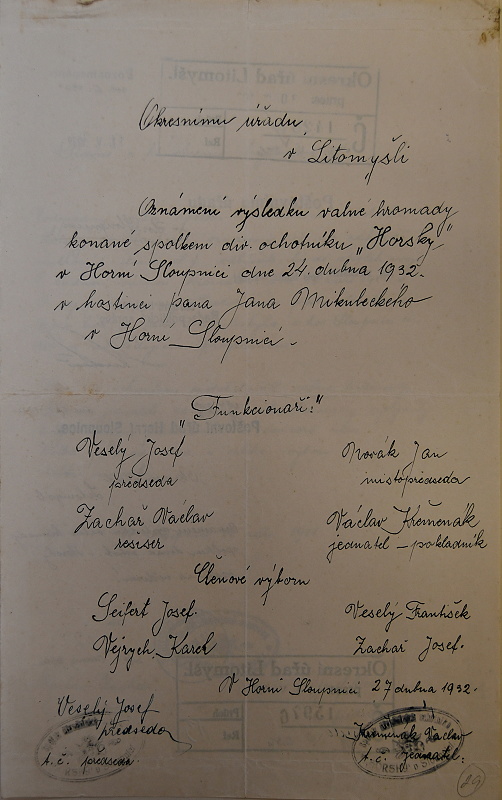 Okresnímu úřadu
v Litomyšli
Oznámení výsledku valné hromady
konané spolkem div. ochotníku „Horský"
v Horní Sloupnici dne 24. dubna 1932.
v hostinci pana Jana Mikuleckého
v Horní Sloupnici.
„Funkcionaři:"
Veselý Josef
předseda
Novák Jan
místopředseda
Zachař Václav
resiser
Václav Křemenák
jednatel – pokladník
Členové výboru
Seifert Josef.
Veselý František
Vejrych Karel
Zachař Josef.
V Horní Sloupnici 27 dubna 1932.
Veselý Josef
předseda
t. č. předseda
Křemenák Václav
t. č. jednatel.
29